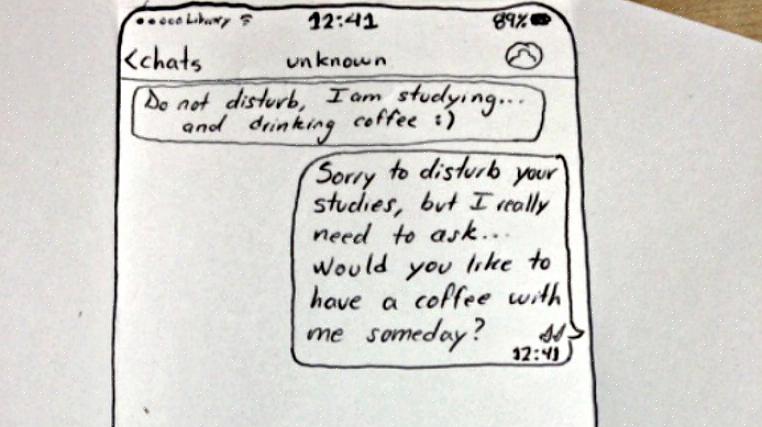 Library 12:41 89%
<chats unknown
Do not disturb, I am studying...
and drinking coffee :)
Sorry to disturb your
studies, but I really
need to ask...
Would you like to
have a coffee with
me someday?
12:41